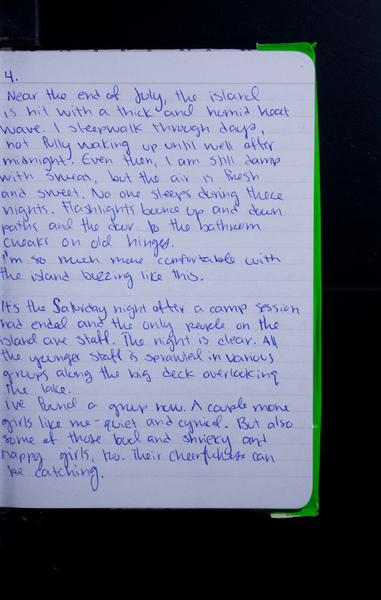 4.
Near the end of July, the island
is hit with a thick and homid heat
wave. I sleepwalk through days,
not fully waking up until well after
midnight. Even then, I am still damp
with sweat, but the air is fresh
and sweet. No one sleeps during these
nights. Flashlights bounce up and down
paths and the door to the bathroom
creaks on old hinges.
I'm so much more comfortable with
the island buzzing like this.
It's the Saturday night after a camp session
had ended and the only people on the
island are staff. The night is clear. All
the younger staff is sprawled in various
groups along the big deck overlooking
the lake.
I've found a group now. A couple more
girls like me - quiet and cynical. But also
some of those loud and shrieky and
happy girls, too. Their cheerfulness can
be catching.